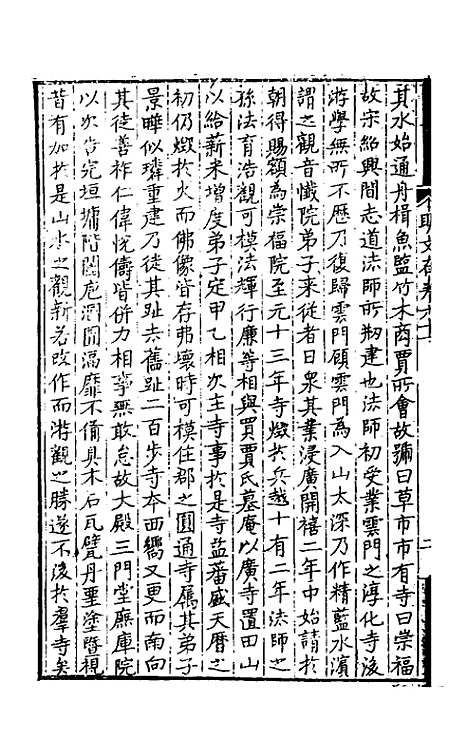 其水始通舟楫魚鹽竹木商賈所會故號曰草市市有寺曰崇福
故宋紹興間志道法師所剙建也法師初受業雲門之淳化寺後
游學無所不歷乃復歸雲門顧雲門為入山太深乃作精藍水濱
謂之觀音懺院弟子来從者日衆其業浸廣開禧二年中始請於
朝得賜額為崇福院至元十三年寺燬於兵越十有二年法師之
孫法育浩觀可模法輝行廉等相與買賈氏墓庵以廣寺置田山
以給薪米增度弟子定甲乙相次主寺事於是寺益蕃盛天曆之
初仍燬於火而佛像皆存弗壞時可模住郡之圓通寺属其弟子
景曄似璘重建乃徒其趾去舊趾二百步寺本西嚮又更而南向
其徒善祚仁偉悦儔皆併力相事無敢怠故大殿三門堂廡庫院
以次告完垣墉階闥庖湢靡不備具木石瓦甓丹堊塗塈視
昔有加於是山水之觀新若改作而游觀之勝遂不後於羣寺矣